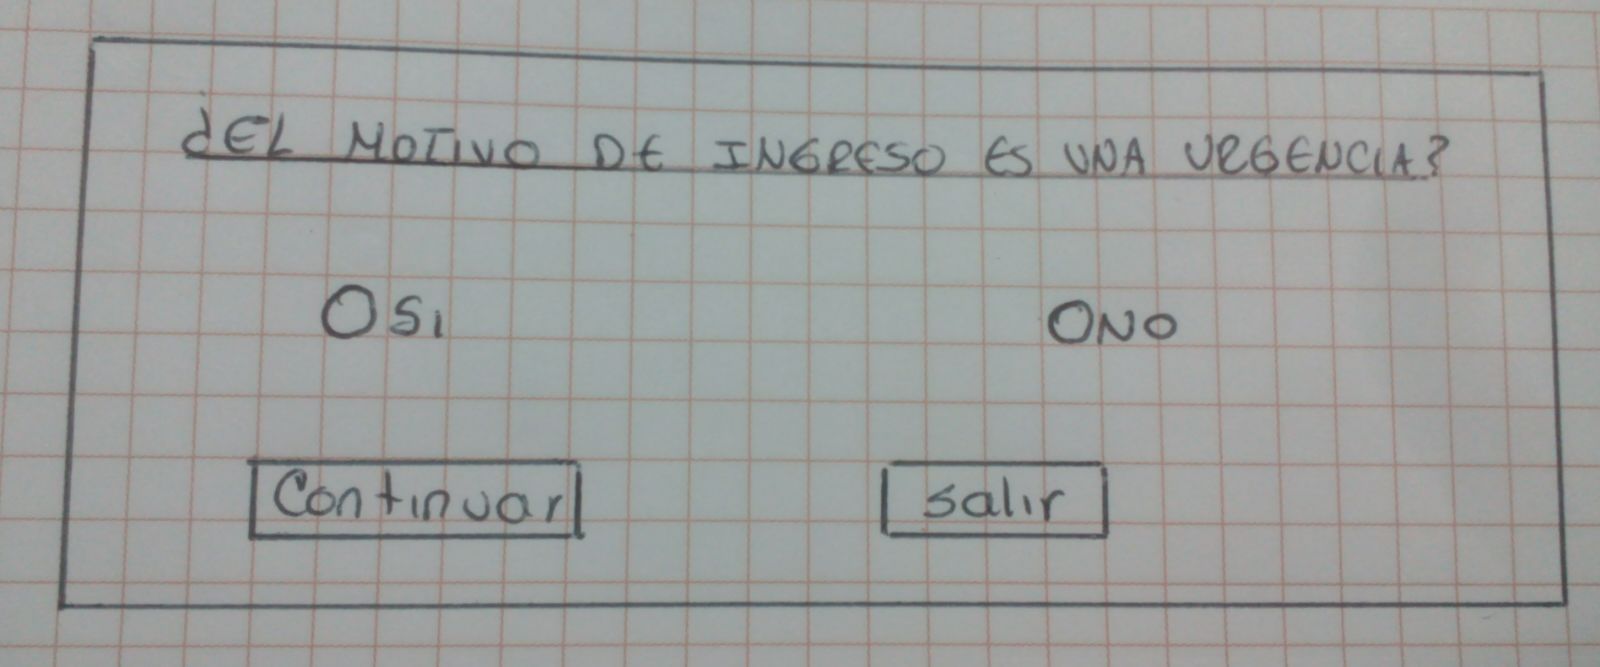 ¿EL MOTIVO DE INGRESO ES UNA URGENCIA?
O Si O NO
Continuar salir